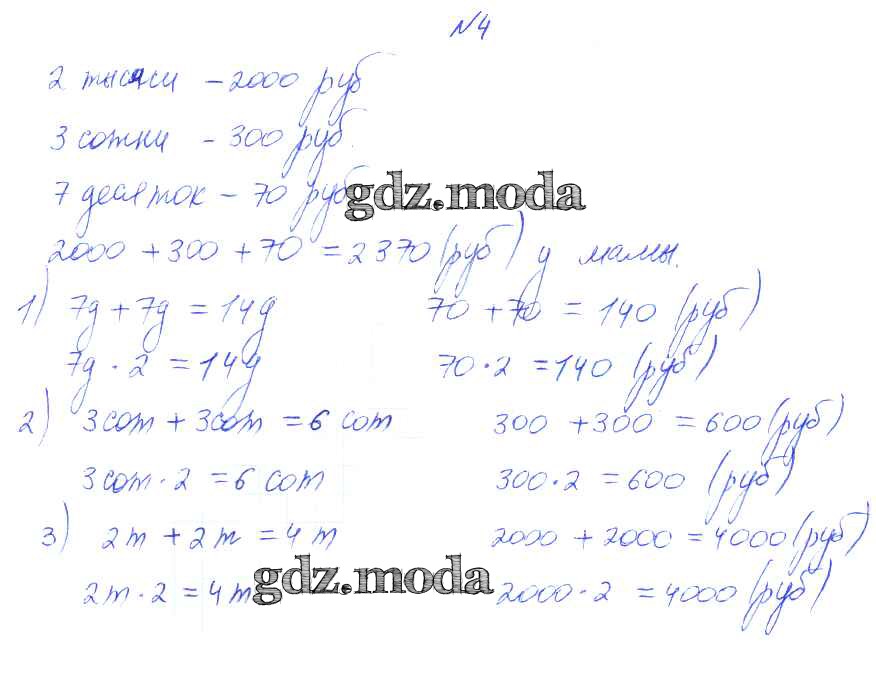 №4
2 тысячи - 2000 руб
3 сотни - 300 руб.
7 десяток - 70 руб
gdz.moda
2000 + 300 + 70 = 2370 (руб) у мамы.
1) 7д + 7д = 14д 70 + 70 = 140 (руб)
7д · 2 = 14д 70 · 2 = 140 (руб)
2) 3 сот + 3 сот = 6 сот 300 + 300 = 600 (руб)
3 сот · 2 = 6 сот 300 · 2 = 600 (руб)
3) 2т + 2т = 4т 2000 + 2000 = 4000 (руб)
2т · 2 = 4т 2000 · 2 = 4000 (руб)
gdz.moda